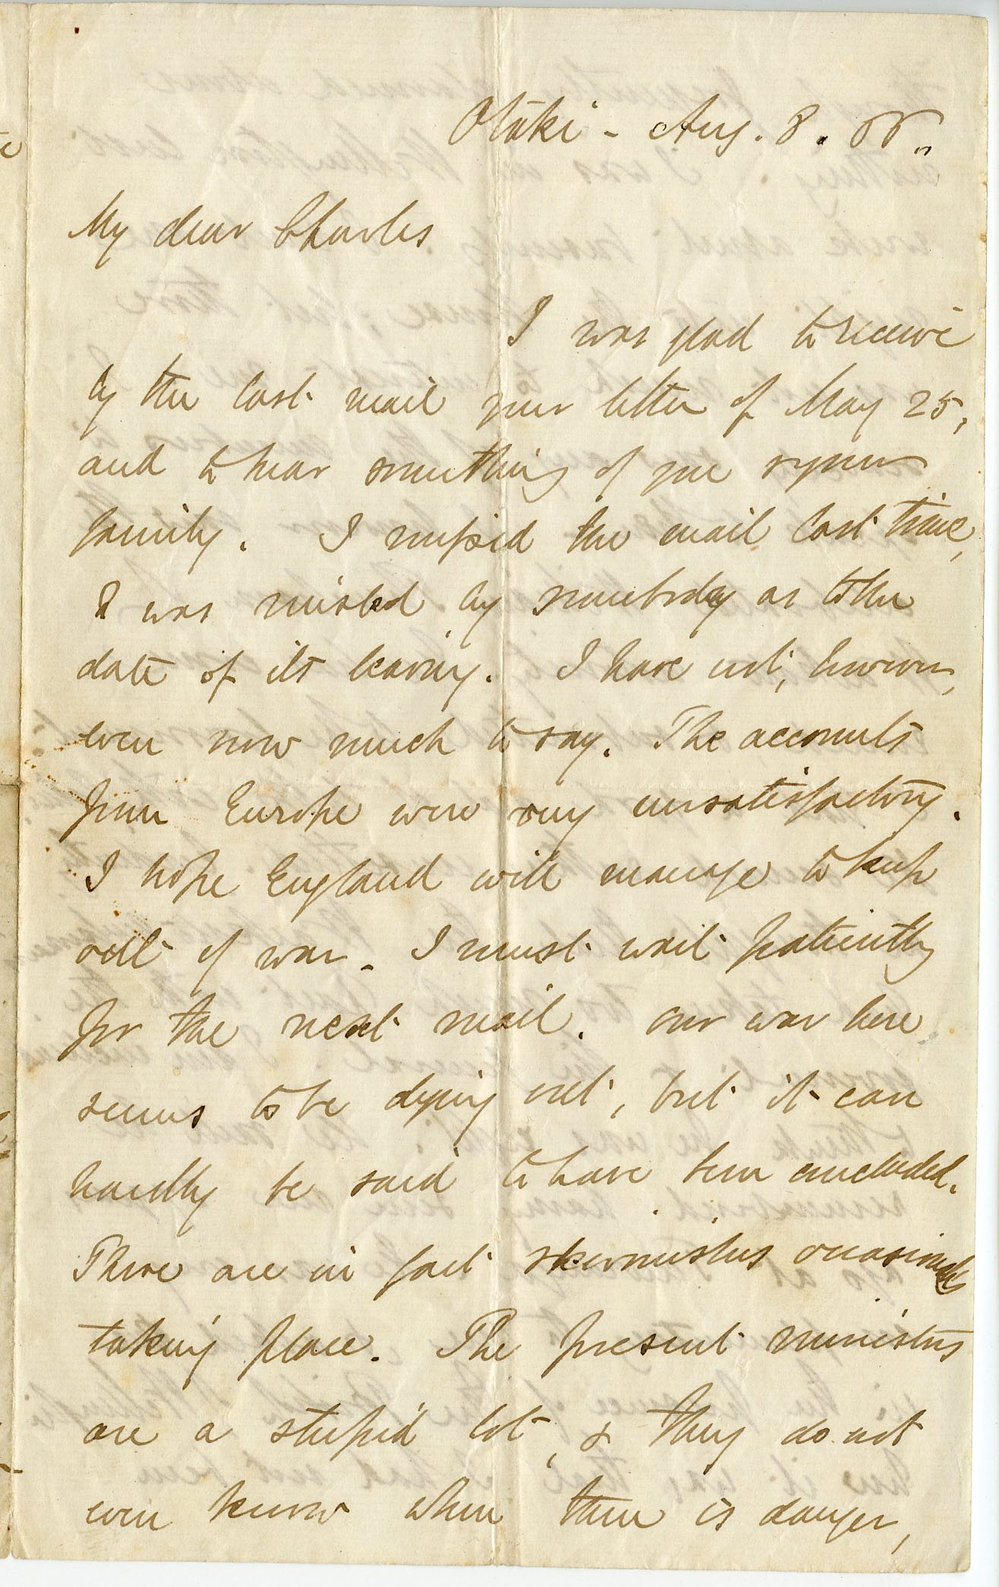 Otaki - Aug. 8. 66.
My dear Charles
I was glad to receive
by the last mail your letter of May 25,
and to hear something of your
family. I missed the mail last time,
I was misled by somebody as to the
date of its leaving. I have not, however,
even now much to say. The accounts
from Europe were very unsatisfactory.
I hope England will manage to keep
out of war. I must wait patiently
for the next mail. Our war here
seems to be dying out, but it can
hardly be said to have been concluded.
There are in fact skirmishes occasionally
taking place. The present ministers
are a stupid lot, & they do not
even know when there is danger,